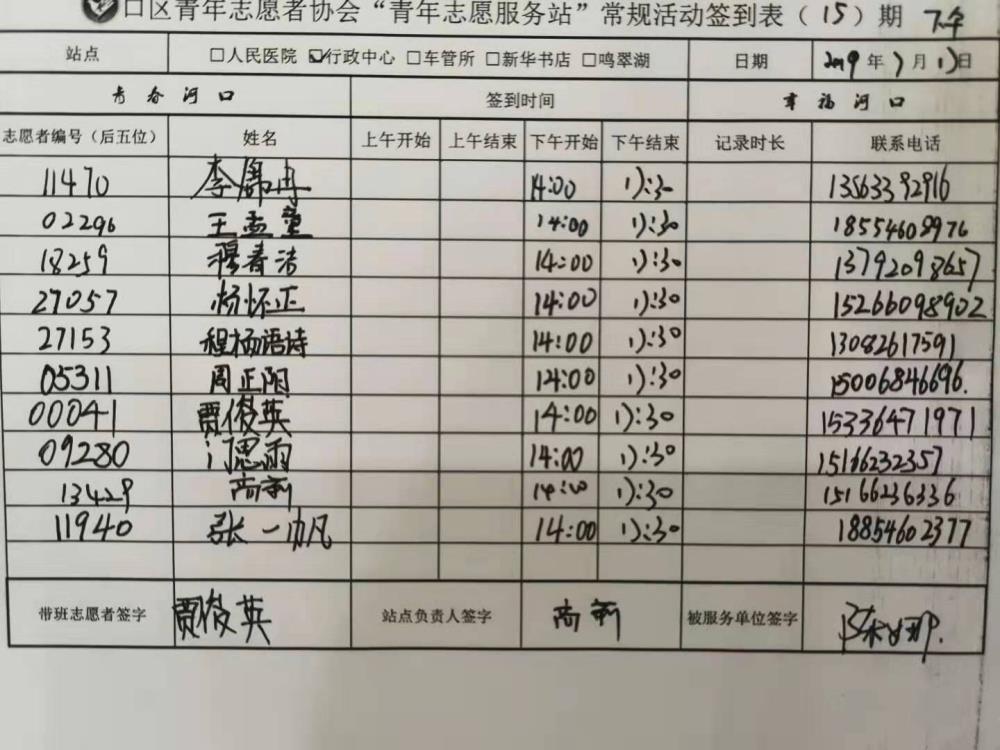 口区青年志愿者协会“青年志愿服务站”常规活动签到表（15）期 下午
站点 □人民医院 ☑行政中心 □车管所 □新华书店 □鸣翠湖 日期 2019年7月17日
青春河口 签到时间 幸福河口
志愿者编号（后五位） 姓名 上午开始 上午结束 下午开始 下午结束 记录时长 联系电话
11470 李 14:00 17:30 13563392916
02296 王孟童 14:00 17:30 18554608976
18259 穆春洁 14:00 17:30 13792098657
27057 杨怀正 14:00 17:30 15266098902
27153 程杨语诗 14:00 17:30 13082617591
05311 周正阳 14:00 17:30 15006846696.
00041 贾俊英 14:00 17:30 15336471971
09280 门思雨 14:00 17:30 15166232357
13429 尚莉 14:00 17:30 15166236336
11940 张一帆 14:00 17:30 18854602377
带班志愿者签字 贾俊英 站点负责人签字 尚莉 被服务单位签字